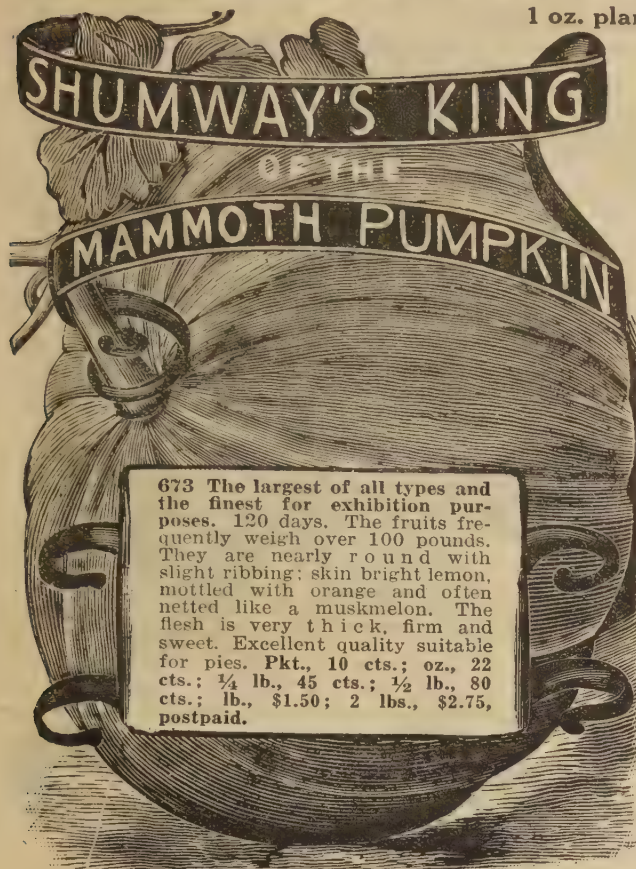 1 oz. plan
SHUMWAY'S KING
OF THE
MAMMOTH PUMPKIN
673 The largest of all types and
the finest for exhibition pur-
poses. 120 days. The fruits fre-
quently weigh over 100 pounds.
They are nearly round with
slight ribbing; skin bright lemon,
mottled with orange and often
netted like a muskmelon. The
flesh is very thick, firm and
sweet. Excellent quality suitable
for pies. Pkt., 10 cts.; oz., 22
cts.; ¼ lb., 45 cts.; ½ lb., 80
cts.; lb., $1.50; 2 lbs., $2.75,
postpaid.